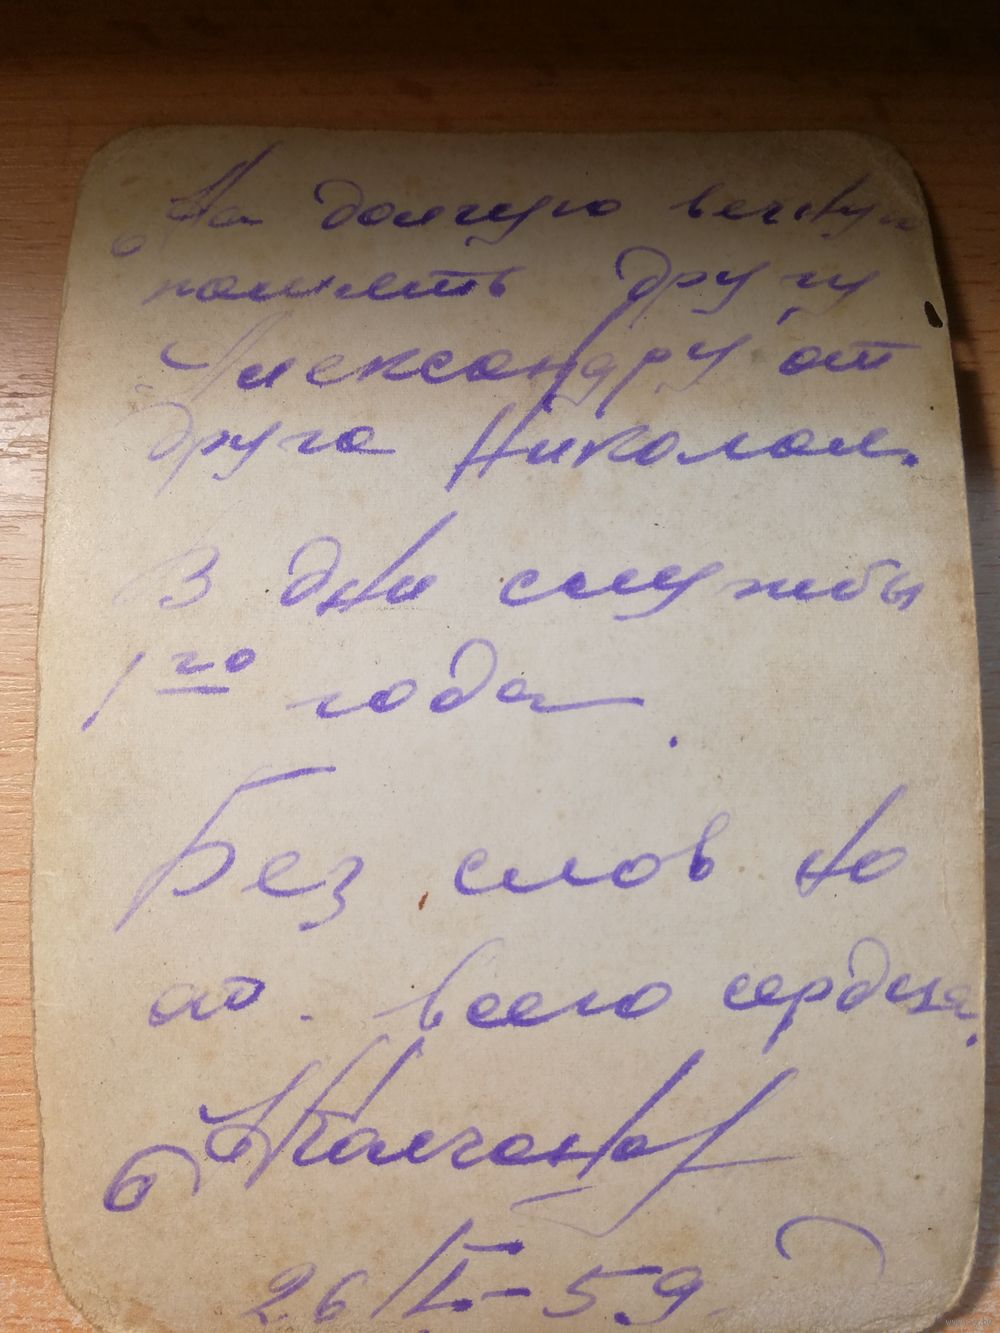 На долгую вечную
память другу
Александру от
друга Николая.
В дни службы
1го года.
Без слов но
от всего сердца.
26/I-59